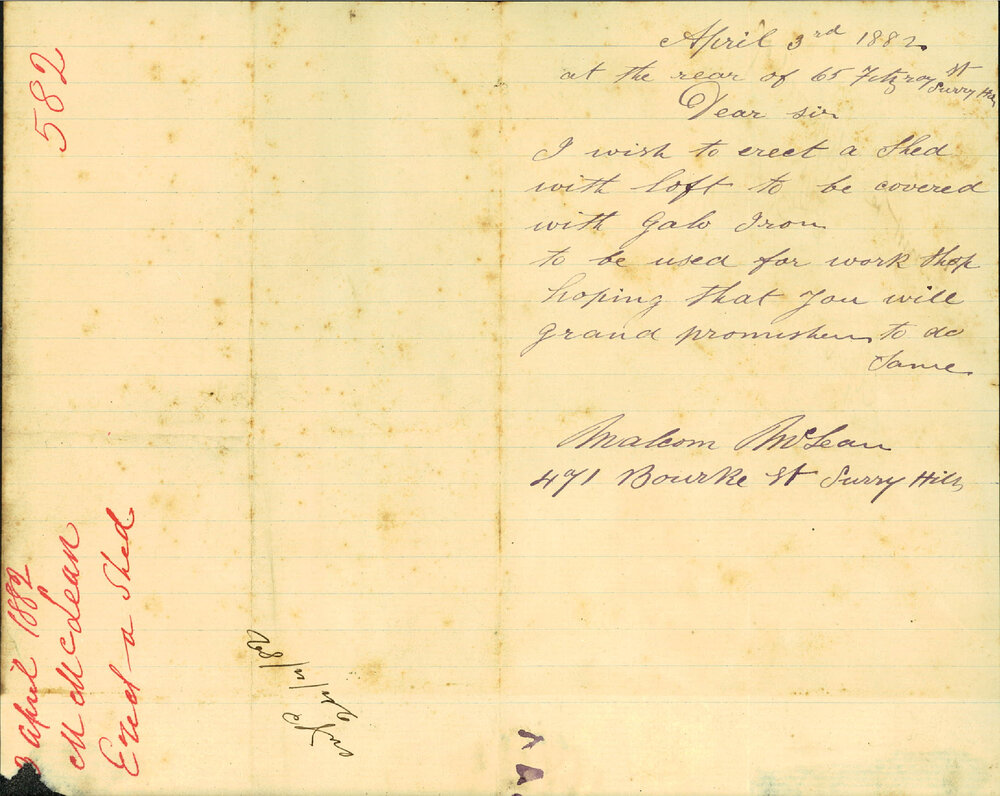 April 3rd 1882
at the rear of 65 Fitzroy St
Surry Hils
Dear sir
I wish to erect a Shed
with loft to be covered
with Galv Iron
to be used for work Shop
hoping that you will
grand promishen to do
Same
Malcom McLean
471 Bourke St Surry Hills
582
3 April 1882
M McLean
Erect a Shed